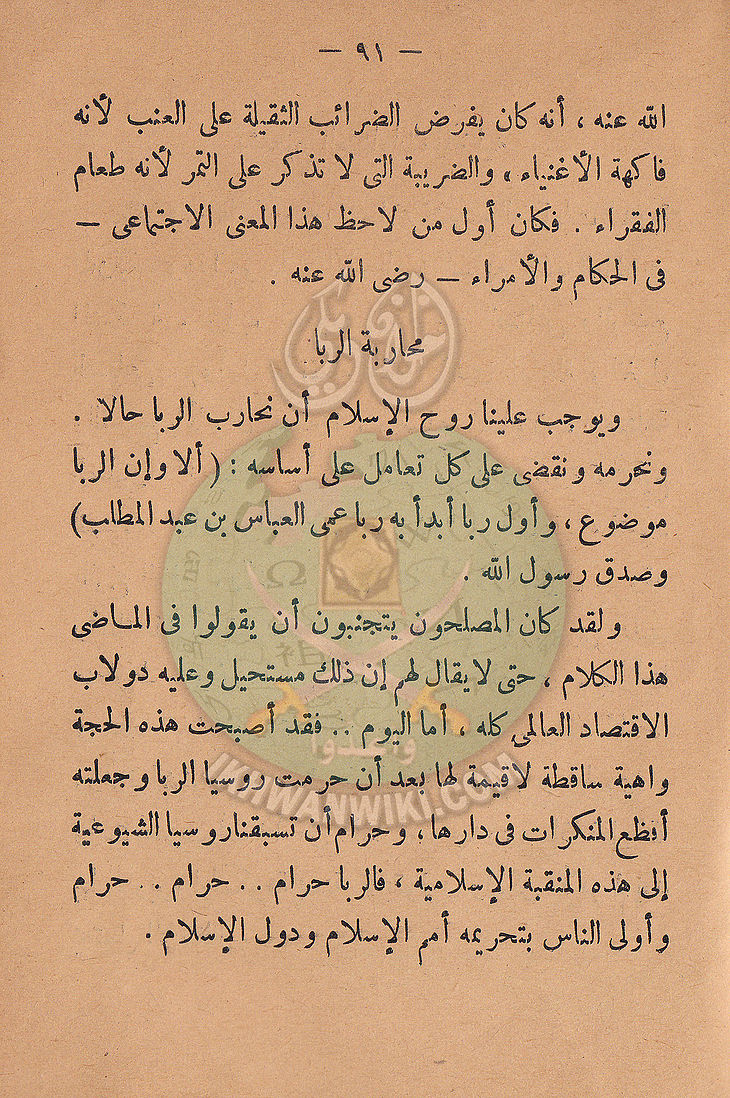 — ٩١ —
الله عنه ، أنه كان يفرض الضرائب الثقيلة على العنب لأنه
فاكهة الأغنياء ، والضريبة التى لا تذكر على التمر لأنه طعام
الفقراء . فكان أول من لاحظ هذا المعنى الاجتماعى —
فى الحكام والأمراء — رضى الله عنه .
محاربة الربا
ويوجب علينا روح الإسلام أن نحارب الربا حالا .
ونحرمه ونقضى على كل تعامل على أساسه : ( ألا وإن الربا
موضوع ، وأول ربا أبدأ به ربا عمى العباس بن عبد المطلب)
وصدق رسول الله .
ولقد كان المصلحون يتجنبون أن يقولوا فى المـاضى
هذا الكلام ، حتى لا يقال لهم إن ذلك مستحيل وعليه دولاب
الاقتصاد العالمى كله ، أما اليوم .. فقد أصبحت هذه الحجة
واهية ساقطة لاقيمة لها بعد أن حرمت روسيا الربا وجعلته
أفظع المنكرات فى دارها ، وحرام أن تسبقنا روسيا الشيوعية
إلى هذه المنقبة الإسلامية ، فالربا حرام .. حرام .. حرام
وأولى الناس بتحريمه أمم الإسلام ودول الإسلام .
وأعدوا
IKHWANWIKI.COM